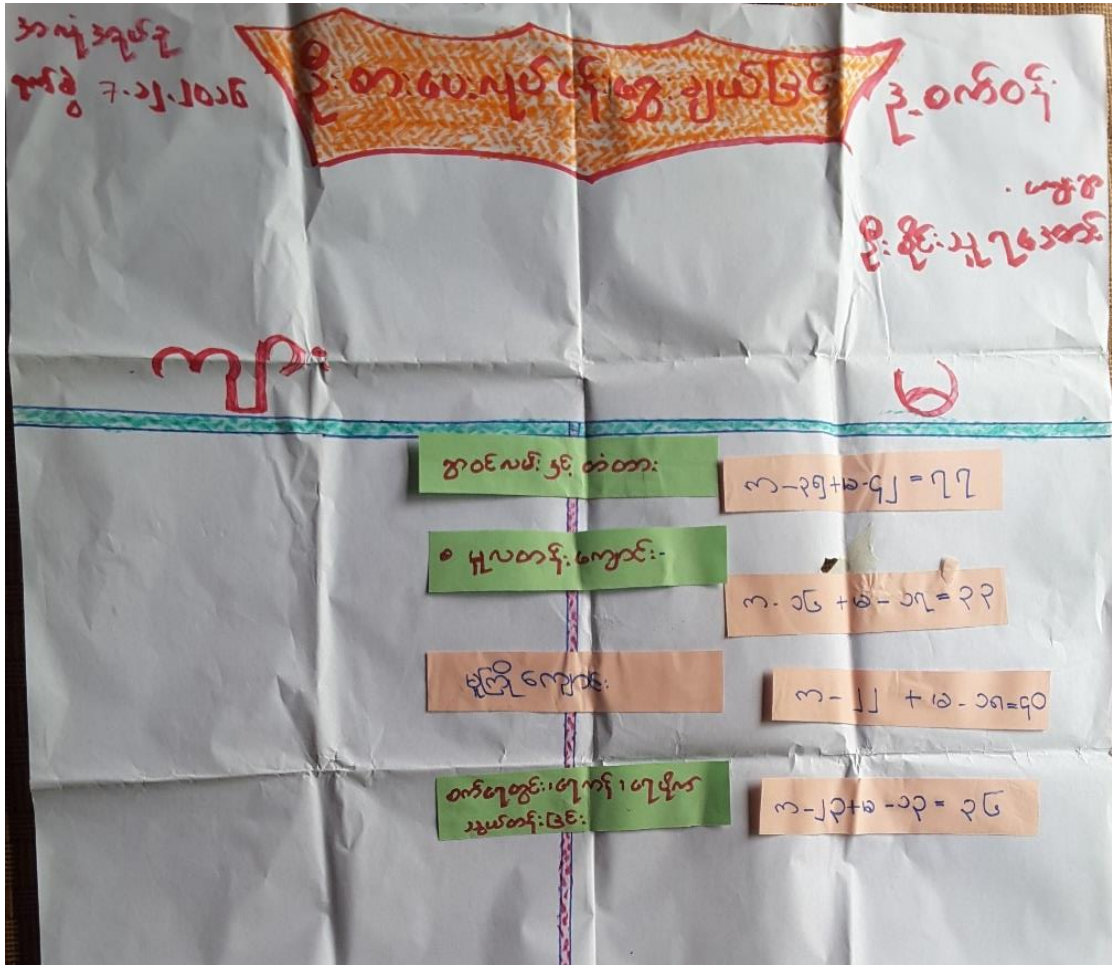 ရက်စွဲ ၇.၁၂.၂၀၁၆
ဦးစားပေးလုပ်ငန်းရွေးချယ်ခြင်း
ဒု.စက်ဝန်း
ကျေးရွာ
ကျား
မ
ရွာဝင်လမ်းနှင့်တံတား
က-၃၅+ခ-၄၂=၇၇
• မူလတန်းကျောင်း-
က-၁၆+ခ-၁၇=၃၃
မူကြိုကျောင်း
က-၂၂ +ခ-၁၈=၄၀
စက်ရေတွင်း၊ရေကန်၊ရေပိုက်
သွယ်တန်းခြင်း
က-၂၃+ခ-၁၃=၃၆